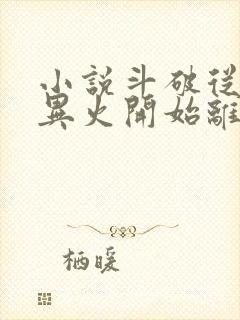 小說斗破從
異火開始離
栖暖